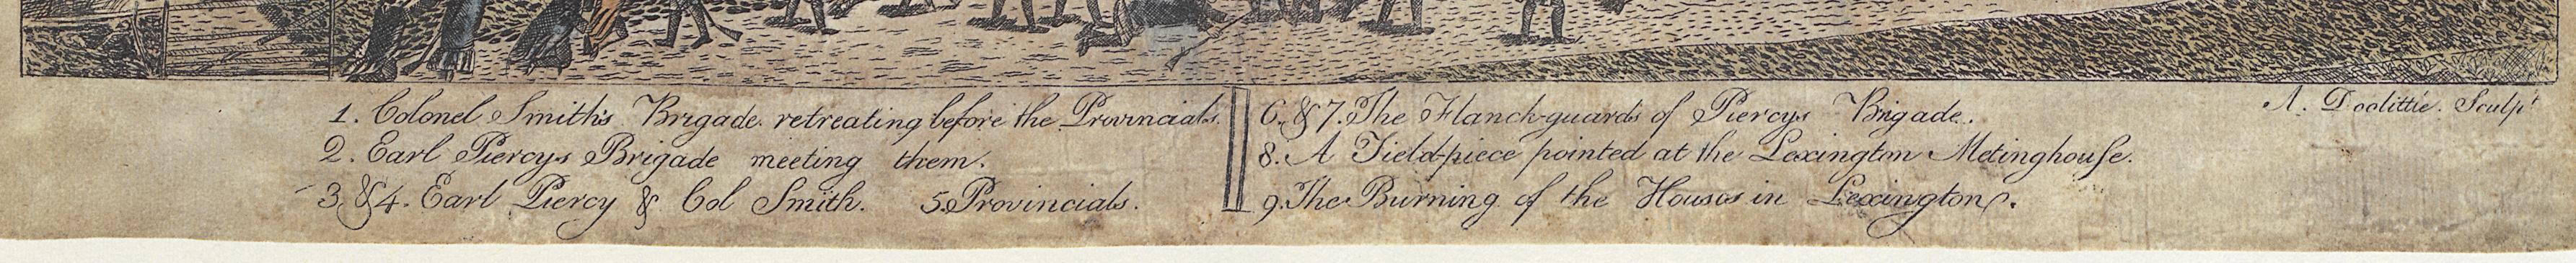 1. Colonel Smith's Brigade retreating before the Provincials.
2. Earl Piercys Brigade meeting them.
3 & 4. Earl Piercy & Col Smith. 5. Provincials.
6. & 7. The Flanck-guards of Piercys Brigade.
8. A Field-piece pointed at the Lexington Metinghouse.
9. The Burning of the Houses in Lexington.
A. Doolittle. Sculpt